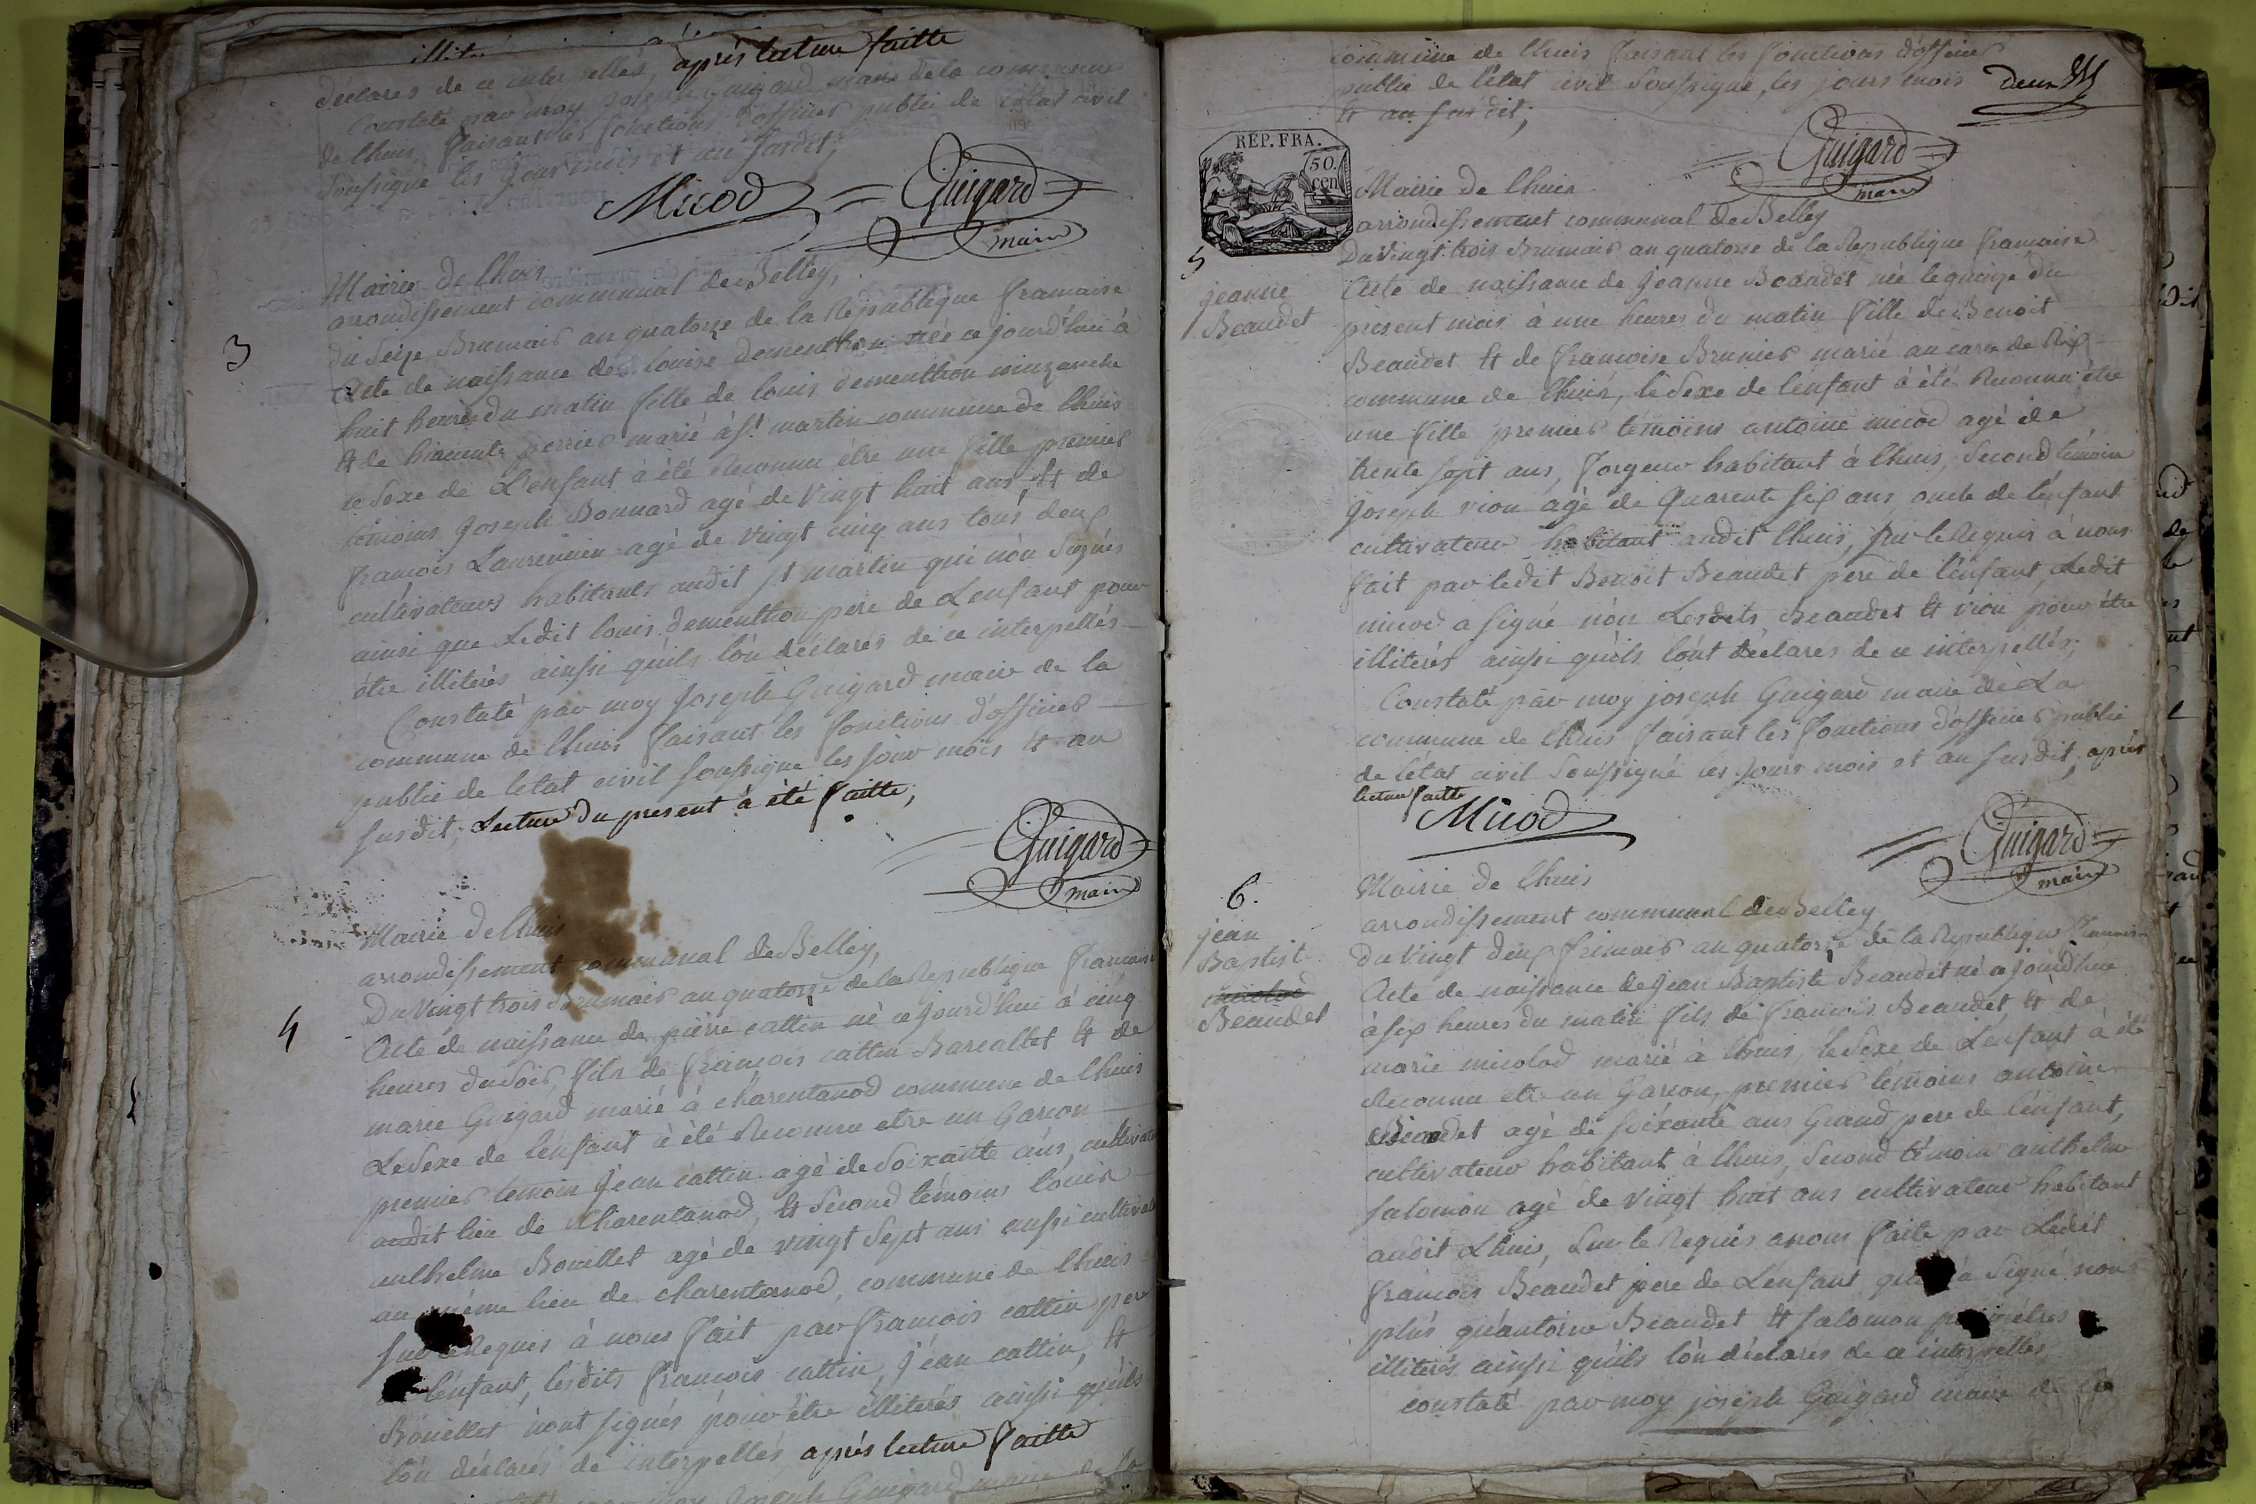 après lecture faitte
déclarés de ce interpellés,
Constaté par moy Joseph Guigard maire de la commune
de lhuis faisant les fonctions d'officier public de l'état civil
soussigné les jour mois et an susdit;
Micod Guigard
maire
Mairie de lhuis
arrondissement communal de Belley,
3
du Seize Brumaire an quatorze de la République francaise
Acte de naissance de louise dementhon née ce jourd'hui à
huit heures du matin fille de louis dementhon
& de perrier marié à st martin commune de lhuis
le Sexe de L'enfant à été Reconnu être une fille premier
témoins Joseph Bonnard agé de vingt huit ans & de
francois agé de vingt cinq ans tous deux
cultivateurs habitants audit st martin qui n'on signés
ainsi que Ledit louis dementhon pere de Lenfant pour
être illiterés ainssi quils l'on déclarés de ce interpellés
Constaté par moy Joseph Guigard maire de la
commune de lhuis faisant les fonctions d'officier
public de letat civil soussigné les jour mois & an
susdit, Lecture du present à été faitte,
Guigard
maire
Mairie de lhuis
arrondissement communal de Belley,
Du Vingt trois Brumaire an quatorze de la République francaise
4
Acte de naissance de pierre cattin né ce jourd'hui à cinq
heures du Soir, fils de françois cattin & de
marie Guigard marié à charentanod commune de lhuis
Le Sexe de lenfant à été Reconnu etre un Garcon
premier temoin jean cattin agé de Soixante ans,
audit lieu de Charentanod, & Second témoins louis
anthelme Bouillet agé de vingt Sept ans aussi
au même lieu de charentanod, commune de lhuis
Requis à nous fait par francois cattin pere
lenfant, lesdits francois cattin, jean cattin, &
Bouillet n'ont signés pour être illiterés ainssi quils
l'on déclarés de interpellés après lecture faitte
Joseph Guigard maire de la
commune de lhuis faisant les fonctions d'officier
public de l'état civil Soussigné, les jours mois
& an susdit;
deux
Guigard
maire
REP. FRA.
50.
cen
Mairie de lhuis
arrondissement communal de Belley
5
Du Vingt trois Brumaire an quatorze de la République francaise
jeanne
Beaudet
Acte de naissance de Jeanne Beaudet née le quinze du
présent mois à une heures du matin fille de Benoit
Beaudet & de francoise Brunier marié au de Rix
commune de lhuis, le Sexe de l'enfant à été Reconnu être
une fille premier témoins antoine micod agé de
trente sept ans, forgeur habitant à lhuis, Second témoin
joseph vion agé de Quarente six ans oncle de l'enfant
cultivateur habitant audit lhuis, sur le Requis à nous
fait par ledit Benoit Beaudet pere de l'enfant, Ledit
micod a signé non Lesdits Beaudet & vion pour être
illiterés ainssi quils l'ont déclarés de ce interpellés;
Constaté par moy joseph Guigard maire de La
commune de lhuis faisant les fonctions d'officier public
de létat civil Soussigné les jours mois et an susdit, après
lecture faitte
Micod
Guigard
maire
6.
Mairie de lhuis
arrondissement communal de Belley
jean
Baptiste
Beaudet
du Vingt deux frimaire an quatorze de la République francaise
Acte de naissance de jean Baptiste Beaudet né ce jourd'hui
à six heures du matin fils de francois Beaudet, & de
marie micolod marié à lhuis, le Sexe de Lenfant à été
Reconnu etre un Garcon, premier témoins antoine
Beaudet agé de soixante ans Grand pere de l'enfant,
cultivateur habitant à lhuis, Second témoin anthelme
salomon agé de vingt huit ans cultivateur habitant
audit Lhuis, Sur le Requis a nous faite par Ledit
francois Beaudet pere de Lenfant, à signé non
plus qu'antoine Beaudet & salomon
illiterés ainssi quils l'on déclarés de ce interpellés
constaté par moy joseph Guigard maire de la